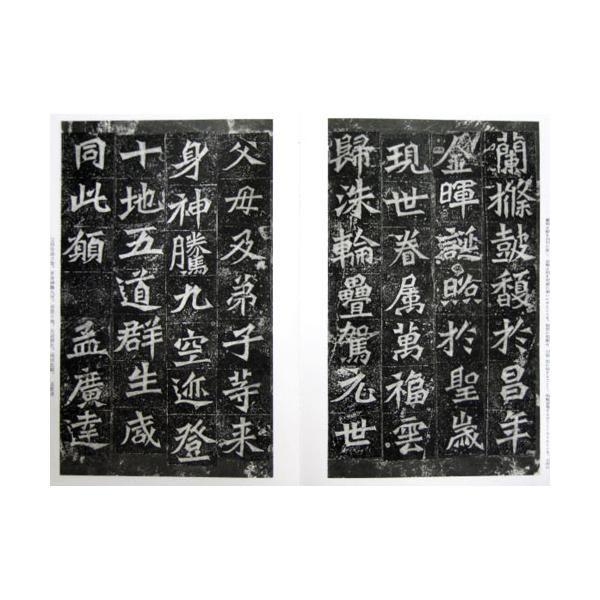 蘭條皷馥於昌年
金暉誕照於聖歲
現世眷属萬福雲
歸洙輪疊駕元世
父母及苐子等来
身神騰九空迹登
十地五道群生咸
同此願 孟廣達